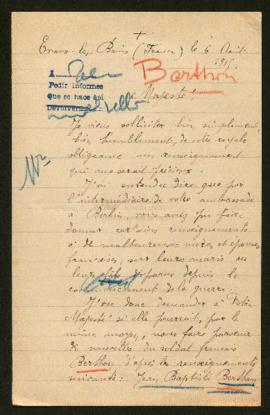 †
Evian-les-Bains (France) le 6 Août
1915.
A
Pedir informes
que se hace aqui
Devuélvame
Berthon
Majesté!
Je viens solliciter bien simplement,
bien humblement, de votre royale
obligeance un renseignement
qui me serait précieux.
J'ai entendu dire, que par
l'intermédiaire de votre ambassade
à Berlin, vous aviez pu faire
donner certains renseignements
à de malheureuses mères et épouses
françaises, sur leurs maris ou
leurs fils disparus depuis le
commencement de la guerre.
J'ose donc demander à Votre
Majesté si elle pourrait, par le
même moyen, nous faire parvenir
de nouvelles du soldat français
Berthon d'après les renseignements
suivants: Jean Baptiste Berthon